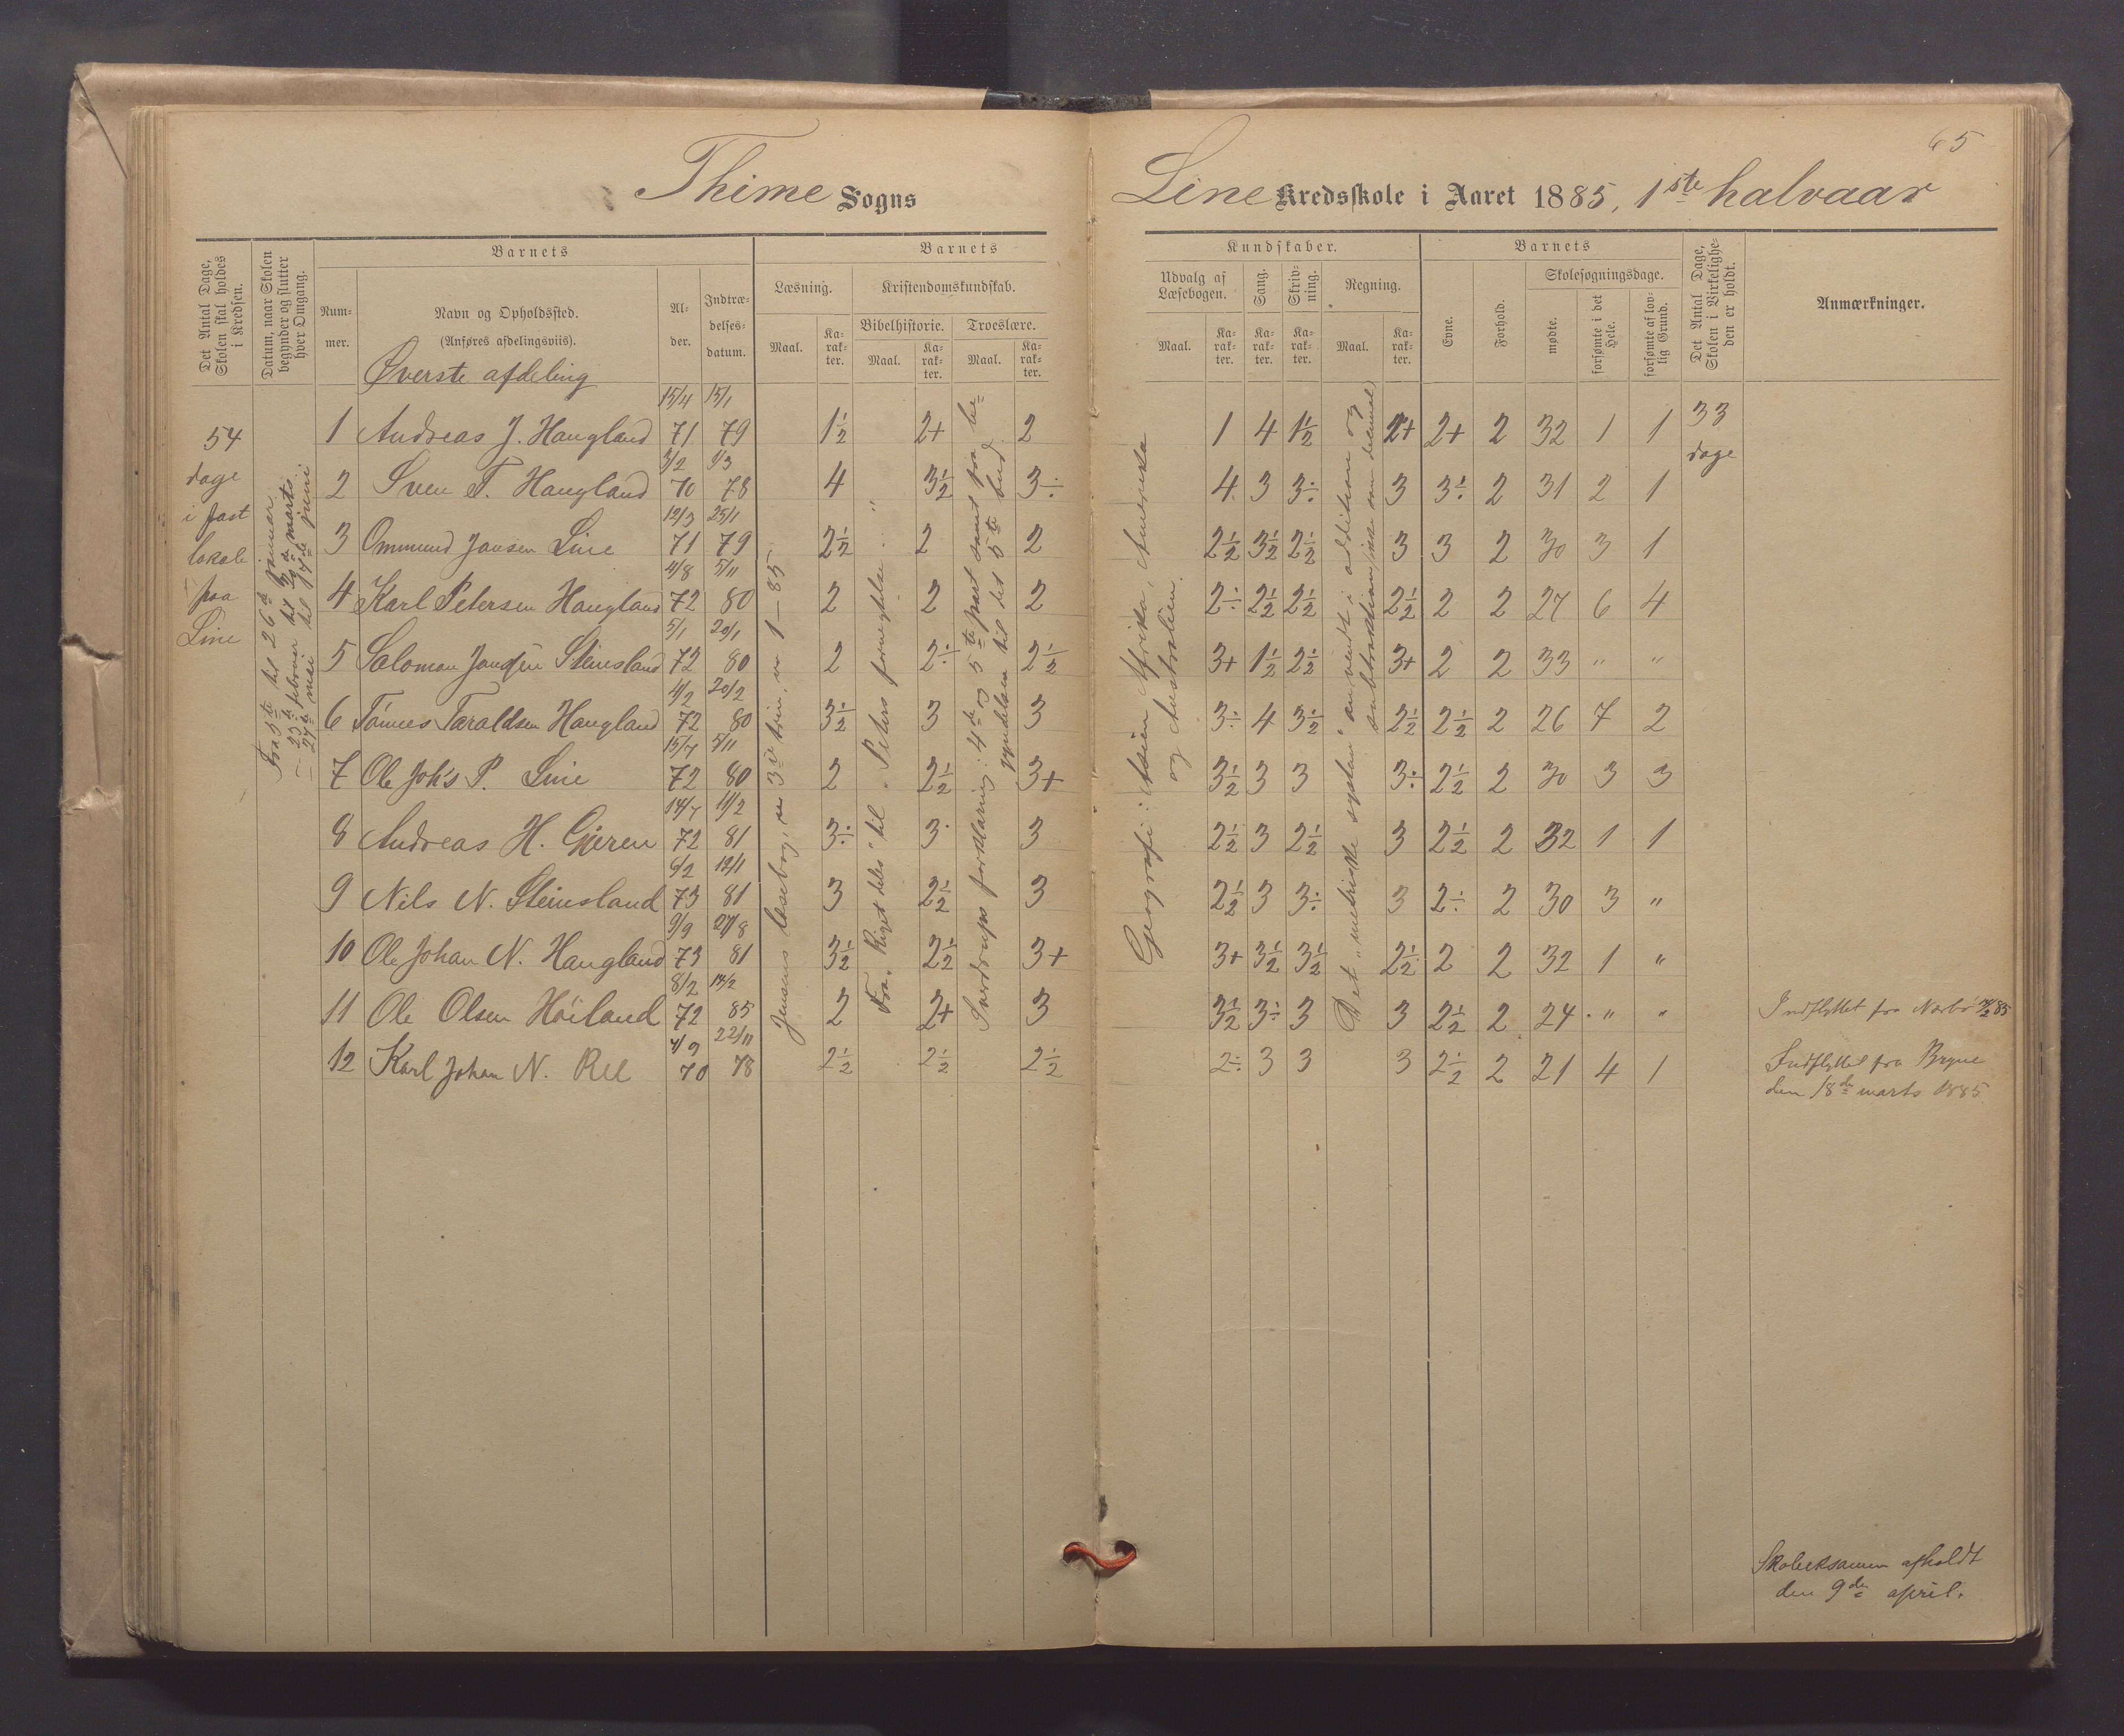 65
Thime Sogns
Line Kredsskole i Aaret 1885, 1ste halvaar
Det Antal Dage, Skolen skal holdes i Kredsen.
Datum, naar Skolen begynder og slutter hver Omgang.
Barnets
Num-mer.
Navn og Opholdssted.
(Anføres afdelingsviis).
Al-der.
Indtræ-delses-datum.
Barnets
Læsning.
Maal.
Ka-rak-ter.
Kristendomskundskab.
Bibelhistorie.
Maal.
Ka-rak-ter.
Troeslære.
Maal.
Ka-rak-ter.
Kundskaber.
Udvalg af Læsebogen.
Maal.
Ka-rak-ter.
Sang.
Ka-rak-ter.
Skriv-ning.
Ka-rak-ter.
Regning.
Maal.
Ka-rak-ter.
Barnets
Evne.
Forhold.
Skolesøgningsdage.
mødte.
forsømte i det Hele.
forsømte af lov-lig Grund.
Det Antal Dage, Skolen i Virkelighe-den er holdt.
Anmærkninger.
Øverste afdeling
54
dage
i fast
lokale
paa
Line
Fra 5te til 26de januar
- 23de februar til 9de marts
- 27de mai til juni
Jensens læsebog, 3die trin, no 1-85
Fra "Riget deles" til "Peters fornegtelse"
Sverdrups forklaring: 4de og 5te part samt fra be-
gyndelsen til det 5te bud.
Geografi: Asien, Afrika, Amerika
og Australien.
Det "metriske system" anvendt i addition og
subtraktion
1 Andreas J. Haugland 15/4 71 15/1 79 1½ 2+ 2 1 4 1½ 2+ 2+ 2 32 1 1 33 dage
2 Sven T. Haugland 3/2 70 1/3 78 4 3½ 3÷ 4 3 3÷ 3 3÷ 2 31 2 1
3 Ommund Jansen Line 12/3 71 25/1 79 2½ 2 2 2½ 3½ 2½ 3 3 2 30 3 1
4 Karl Petersen Haugland 4/8 72 5/11 80 2 2 2 2÷ 2½ 2½ 2½ 2 2 27 6 4
5 Salomon Jansen Steinsland 5/1 72 20/1 80 2 2÷ 2½ 3+ 1½ 2½ 3+ 2 2 33 " "
6 Tønnes Taraldsen Haugland 4/2 72 20/2 80 3½ 3 3 3÷ 4 3½ 2½ 2½ 2 26 7 2
7 Ole Johs P. Line 15/7 72 5/11 80 2 2½ 3+ 3½ 3 3 3÷ 2½ 2 30 3 3
8 Andreas H. Gjeren 14/7 72 11/2 81 3÷ 3 3 2½ 3 2½ 3 2½ 2 32 1 1
9 Nils N. Steinsland 6/2 73 12/1 81 3 2½ 3 2½ 3 3÷ 3 2÷ 2 30 3 "
10 Ole Johan N. Haugland 9/9 73 27/8 81 3½ 2½ 3+ 3+ 3½ 3½ 2½ 2 2 32 1 "
11 Ole Olsen Høiland 8/2 72 85 2 2+ 3 3½ 3÷ 3 3 2½ 2 24 " " Indflyttet fra Nærbø
12 Karl Johan N. Ree 4/9 70 22/11 78 2½ 2½ 2½ 2÷ 3 3 3 2½ 2 21 4 1 Indflyttet fra Bryne
den 18de marts 1885
Skoleeksamen afholdt
den 9de april.